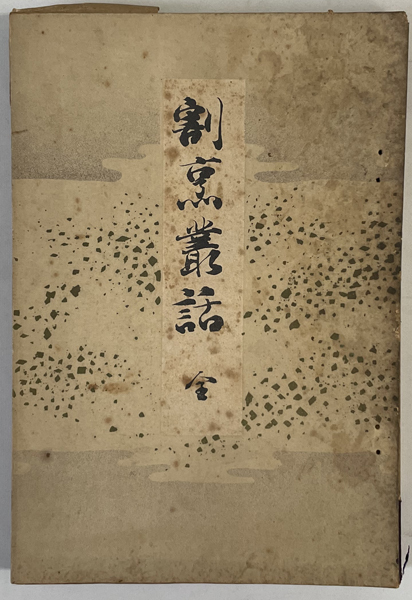 割烹叢話 全